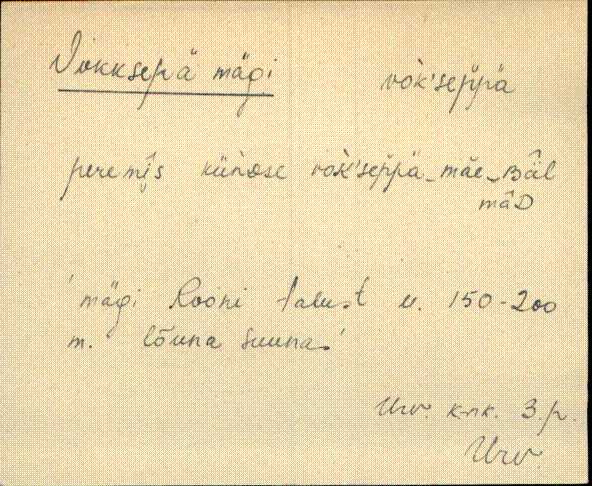 Vokksepä mägi vok'seppä
peremîs künɒse vok'seppä-mäe-Bäl
mâD
'mägi Rooni talust u. 150-200
m. lõuna suunas'
Urv. k.nk. 3.p.
Urv.